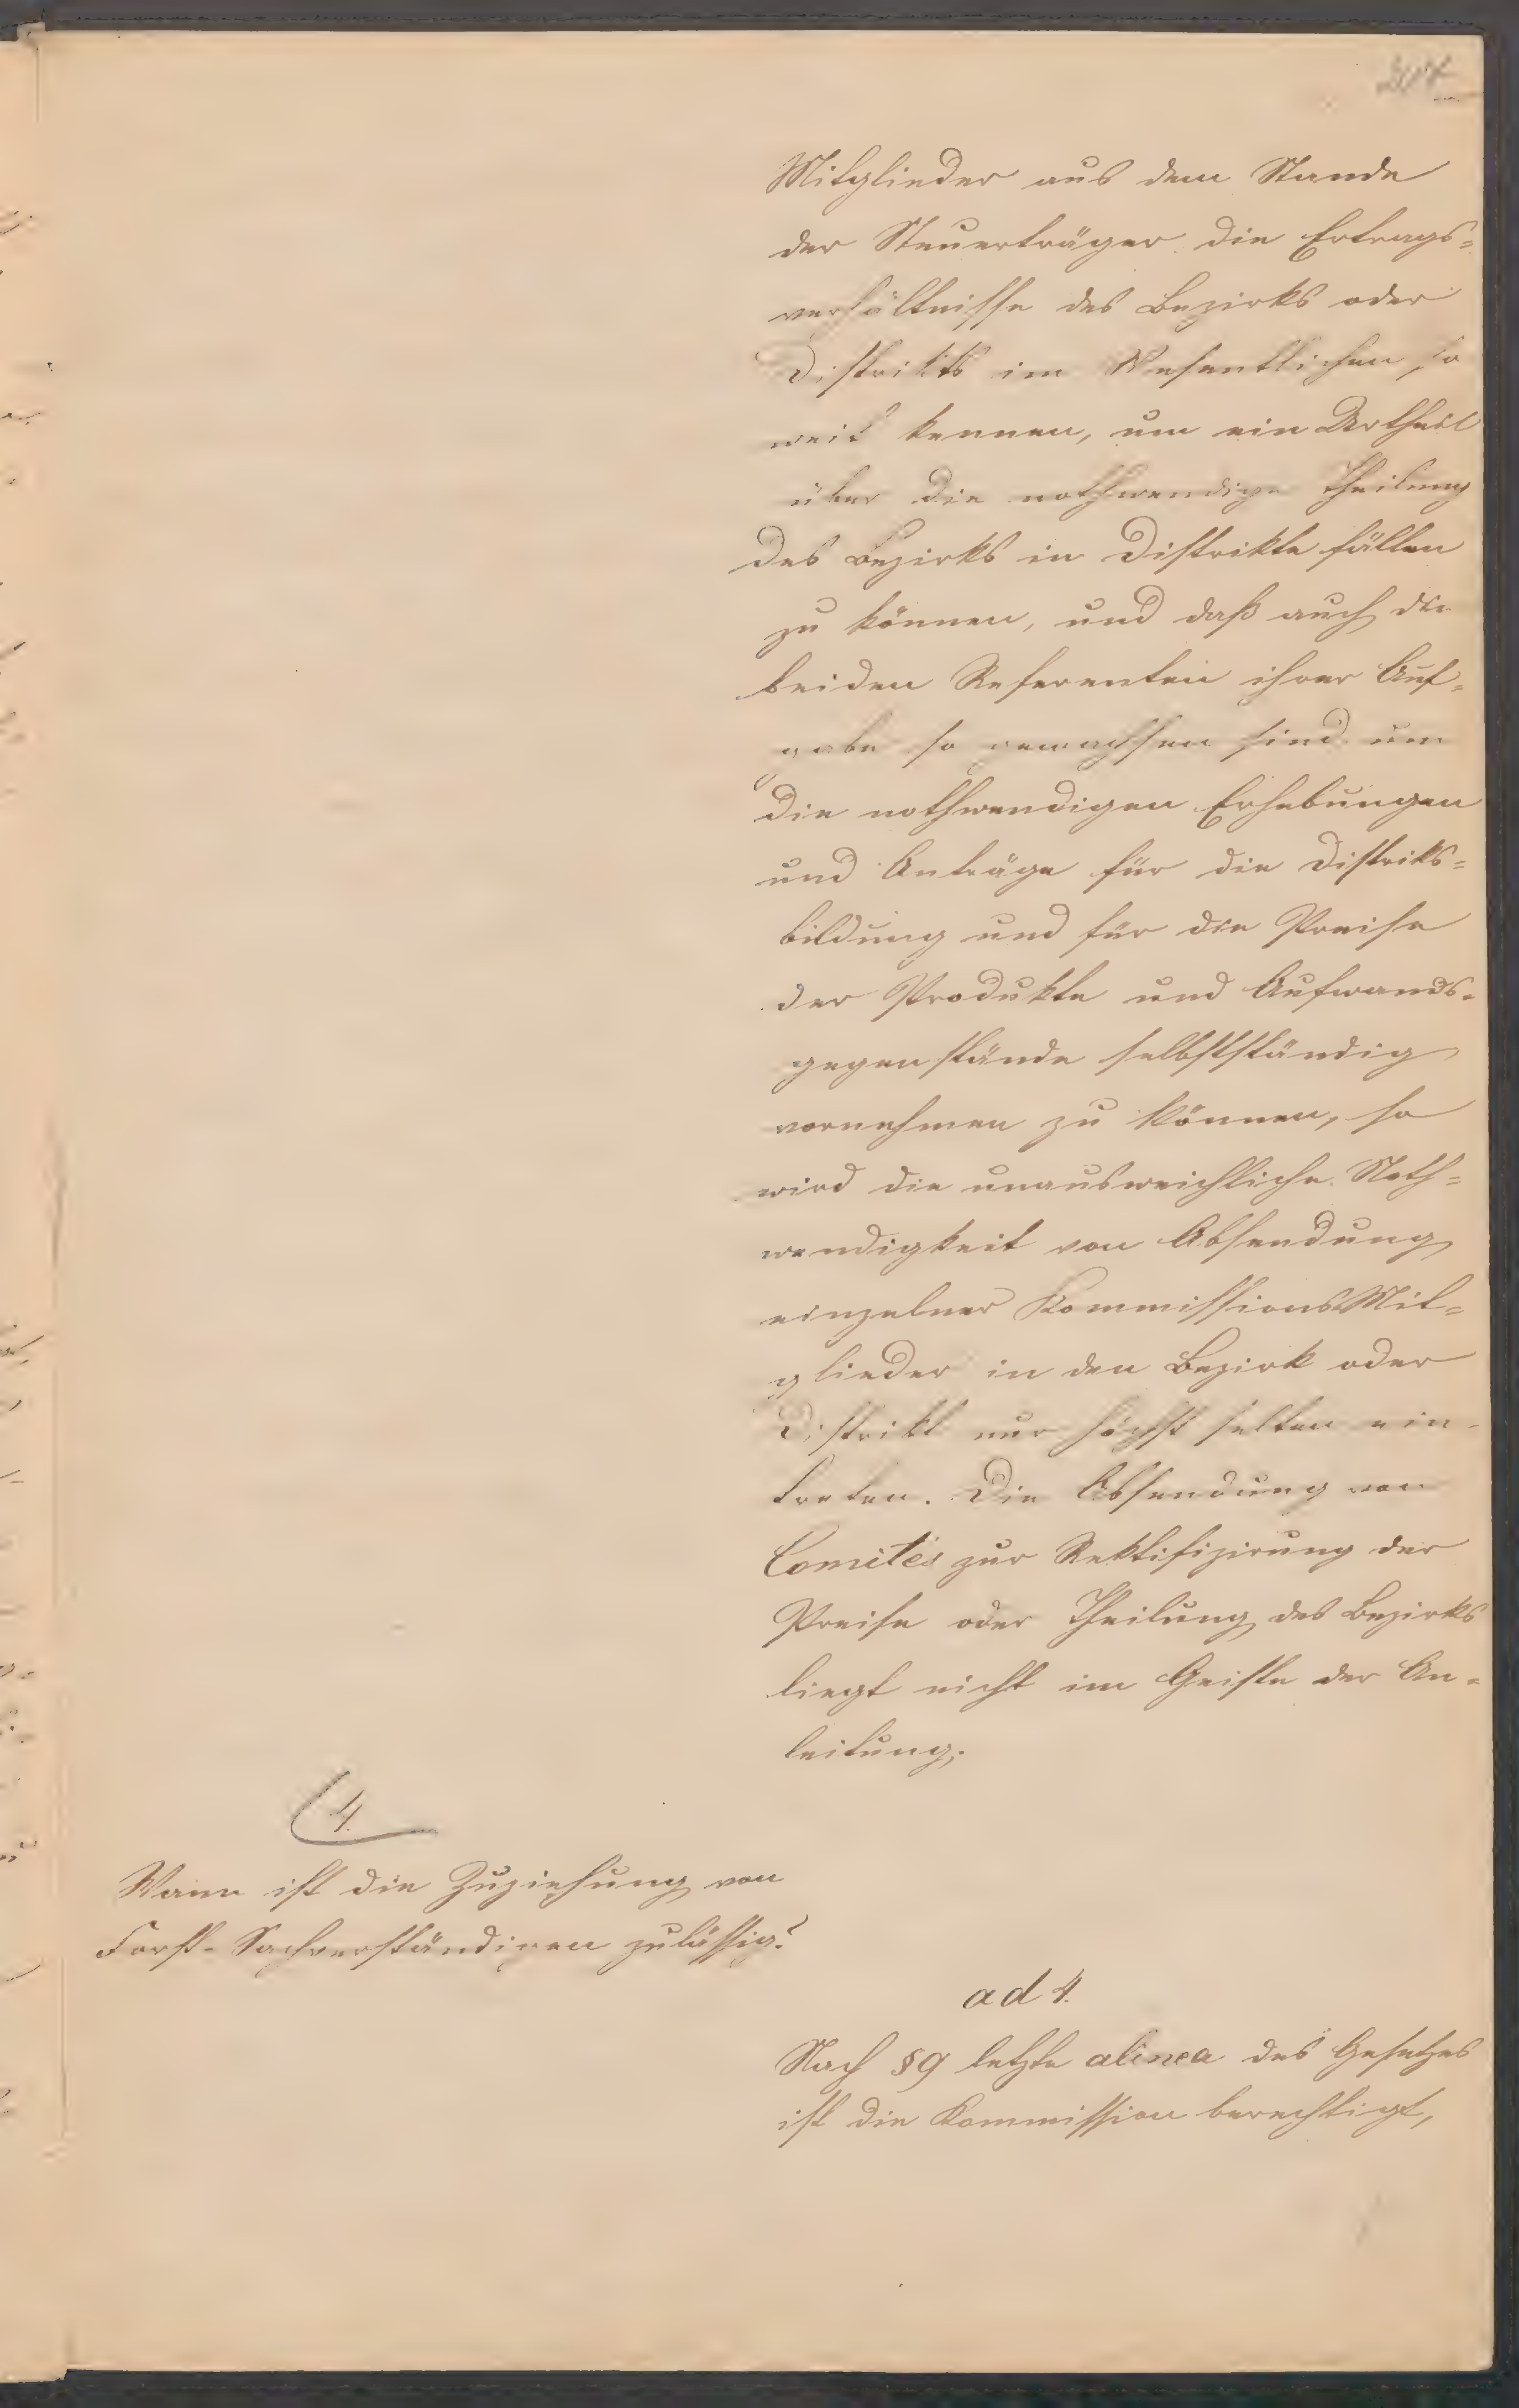 Mitglieder aus dem Stande
der Steuerträger die Ertrags=
verhältnisse des Bezirks oder
Distrikts im Wesentlichen so
weit kennen, um ein Urtheil
über die nothwendige Theilung
des Bezirks in Distrikte fällen
zu können, und daß auch die
beiden Referenten ihrer Auf=
gabe so gewachsen sind um
die nothwendigen Erhebungen
und Anträge für die Distrikts=
bildung und für die Preise
der Produkte und Aufwands=
gegenstände selbstständig
vornehmen zu können, so
wird die unausweichliche Noth=
wendigkeit von Absendung
einzelner Kommissions Mit=
glieder in den Bezirk oder
Distrikt nur höchst selten ein-
treten. Die Absendung von
Comités zur Rektifizirung der
Preise oder Theilung des Bezirks
liegt nicht im Geiste der An=
leitung.
4.
Wann ist die Zuziehung von
Forst-Sachverständigen zulässig?
ad 4.
Nach §9 letzte alinea des Gesetzes
ist die Kommission berechtigt,